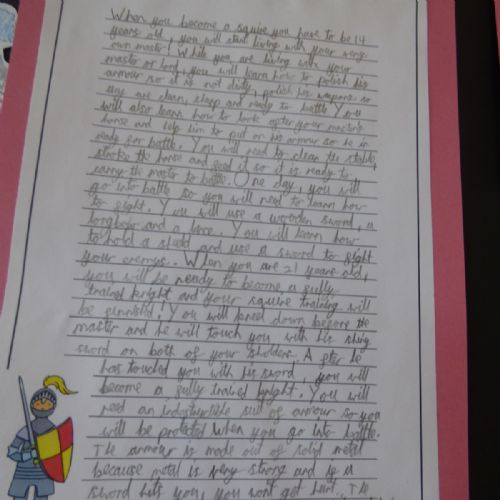 When you become a squire you have to be 14
years old, you will start living with your very
own master! While you are living with your
master or lord, you will learn how to polish his
armour so it is not dirty, polish his weapons so
they are clean, sharp and ready to battle. You
will also learn how to look after your masters
horse and help him to put on his armour so he is
ready for battle. You will need to clean the stable,
stroke the horse and feed it so it is ready to
carry the master to battle. One day, you will
go into battle so you will need to learn how
to fight. You will use a wooden sword, a
longbow and a lance. You will learn how
to hold a and use a sword to fight
your enemys. When you are 21 years old,
you will be ready to become a fully
trained knight and your squire training will
be finnishd! You will kneel down before the
master and he will touch you with his shiny
sword on both of your sholders. After he
has touched you with his sword, you will
become a fully trained knight. You will
need an suit of armour so you
will be protected when you go into battle.
The armour is made out of solid metal
because metal is very strong and if a
sword hits you, you won't get hurt. The